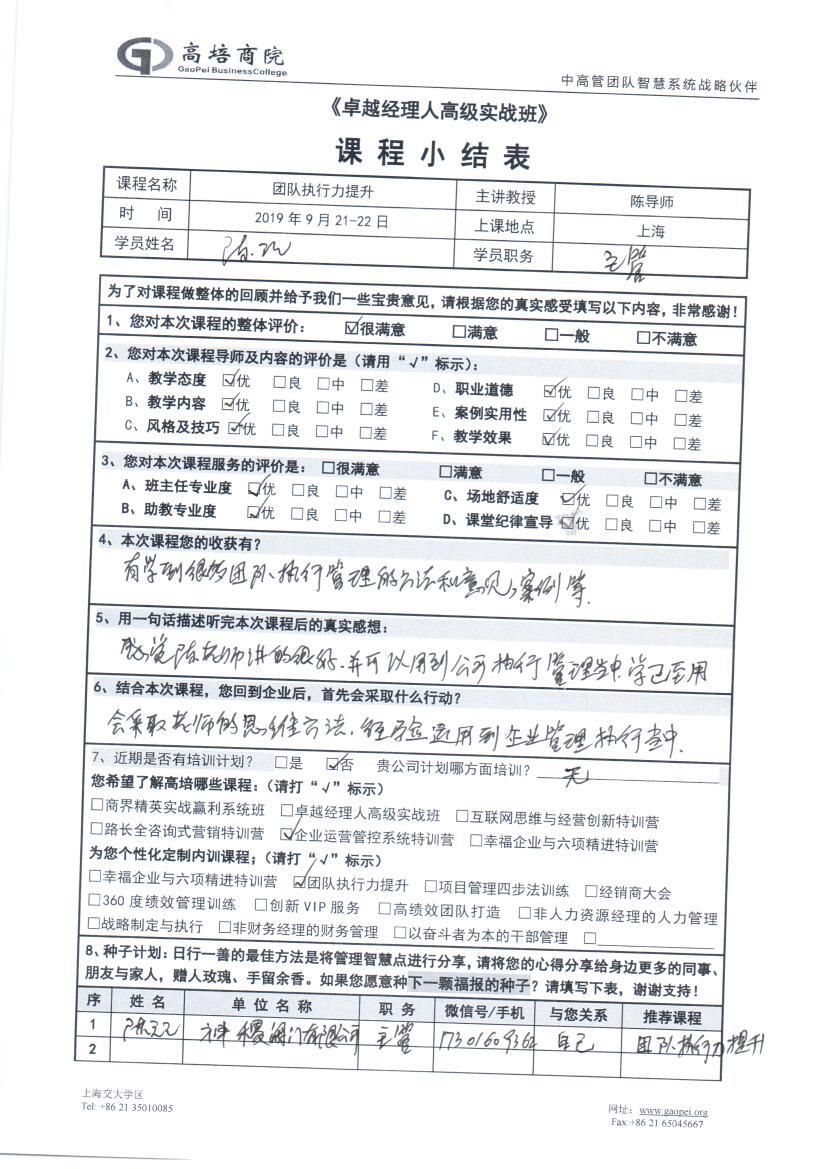 高培商院
GaoPei BusinessCollege
中高管团队智慧系统战略伙伴
《卓越经理人高级实战班》
课程小结表
课程名称 团队执行力提升 主讲教授 陈导师
时 间 2019年9月21-22日 上课地点 上海
学员姓名 学员职务 主管
为了对课程做整体的回顾并给予我们一些宝贵意见,请根据您的真实感受填写以下内容,非常感谢!
1、您对本次课程的整体评价: ☑很满意 □满意 □一般 □不满意
2、您对本次课程导师及内容的评价是(请用“√”标示):
A、教学态度 ☑优 □良 □中 □差 D、职业道德 ☑优 □良 □中 □差
B、教学内容 ☑优 □良 □中 □差 E、案例实用性 ☑优 □良 □中 □差
C、风格及技巧 ☑优 □良 □中 □差 F、教学效果 ☑优 □良 □中 □差
3、您对本次课程服务的评价是: □很满意 □满意 □一般 □不满意
A、班主任专业度 ☑优 □良 □中 □差 C、场地舒适度 ☑优 □良 □中 □差
B、助教专业度 ☑优 □良 □中 □差 D、课堂纪律宣导 ☑优 □良 □中 □差
4、本次课程您的收获有?
有学到很多团队执行管理的方法和意见,案例等.
5、用一句话描述听完本次课程后的真实感想:
感觉陈老师讲的很好.并可以用到公司执行管理当中.学已至用
6、结合本次课程,您回到企业后,首先会采取什么行动?
会采取老师的思维方法.经验运用到企业管理执行当中.
7、近期是否有培训计划? □是 ☑否 贵公司计划哪方面培训? 无
您希望了解高培哪些课程:(请打“√”标示)
□商界精英实战赢利系统班 □卓越经理人高级实战班 □互联网思维与经营创新特训营
□路长全咨询式营销特训营 ☑企业运营管控系统特训营 □幸福企业与六项精进特训营
为您个性化定制内训课程;(请打“√”标示)
□幸福企业与六项精进特训营 ☑团队执行力提升 □项目管理四步法训练 □经销商大会
□360度绩效管理训练 □创新VIP服务 □高绩效团队打造 □非人力资源经理的人力管理
□战略制定与执行 □非财务经理的财务管理 □以奋斗者为本的干部管理 □
8、种子计划:日行一善的最佳方法是将管理智慧点进行分享,请将您的心得分享给身边更多的同事、
朋友与家人,赠人玫瑰、手留余香。如果您愿意种下一颗福报的种子?请填写下表,谢谢支持!
序 姓名 单位名称 职务 微信号/手机 与您关系 推荐课程
1 阀门有限公司 主管 自己 团队执行力提升
2
上海交大学区
Tel: +86 21 35010085
网址: www.gaopei.org
Fax:+86 21 65045667